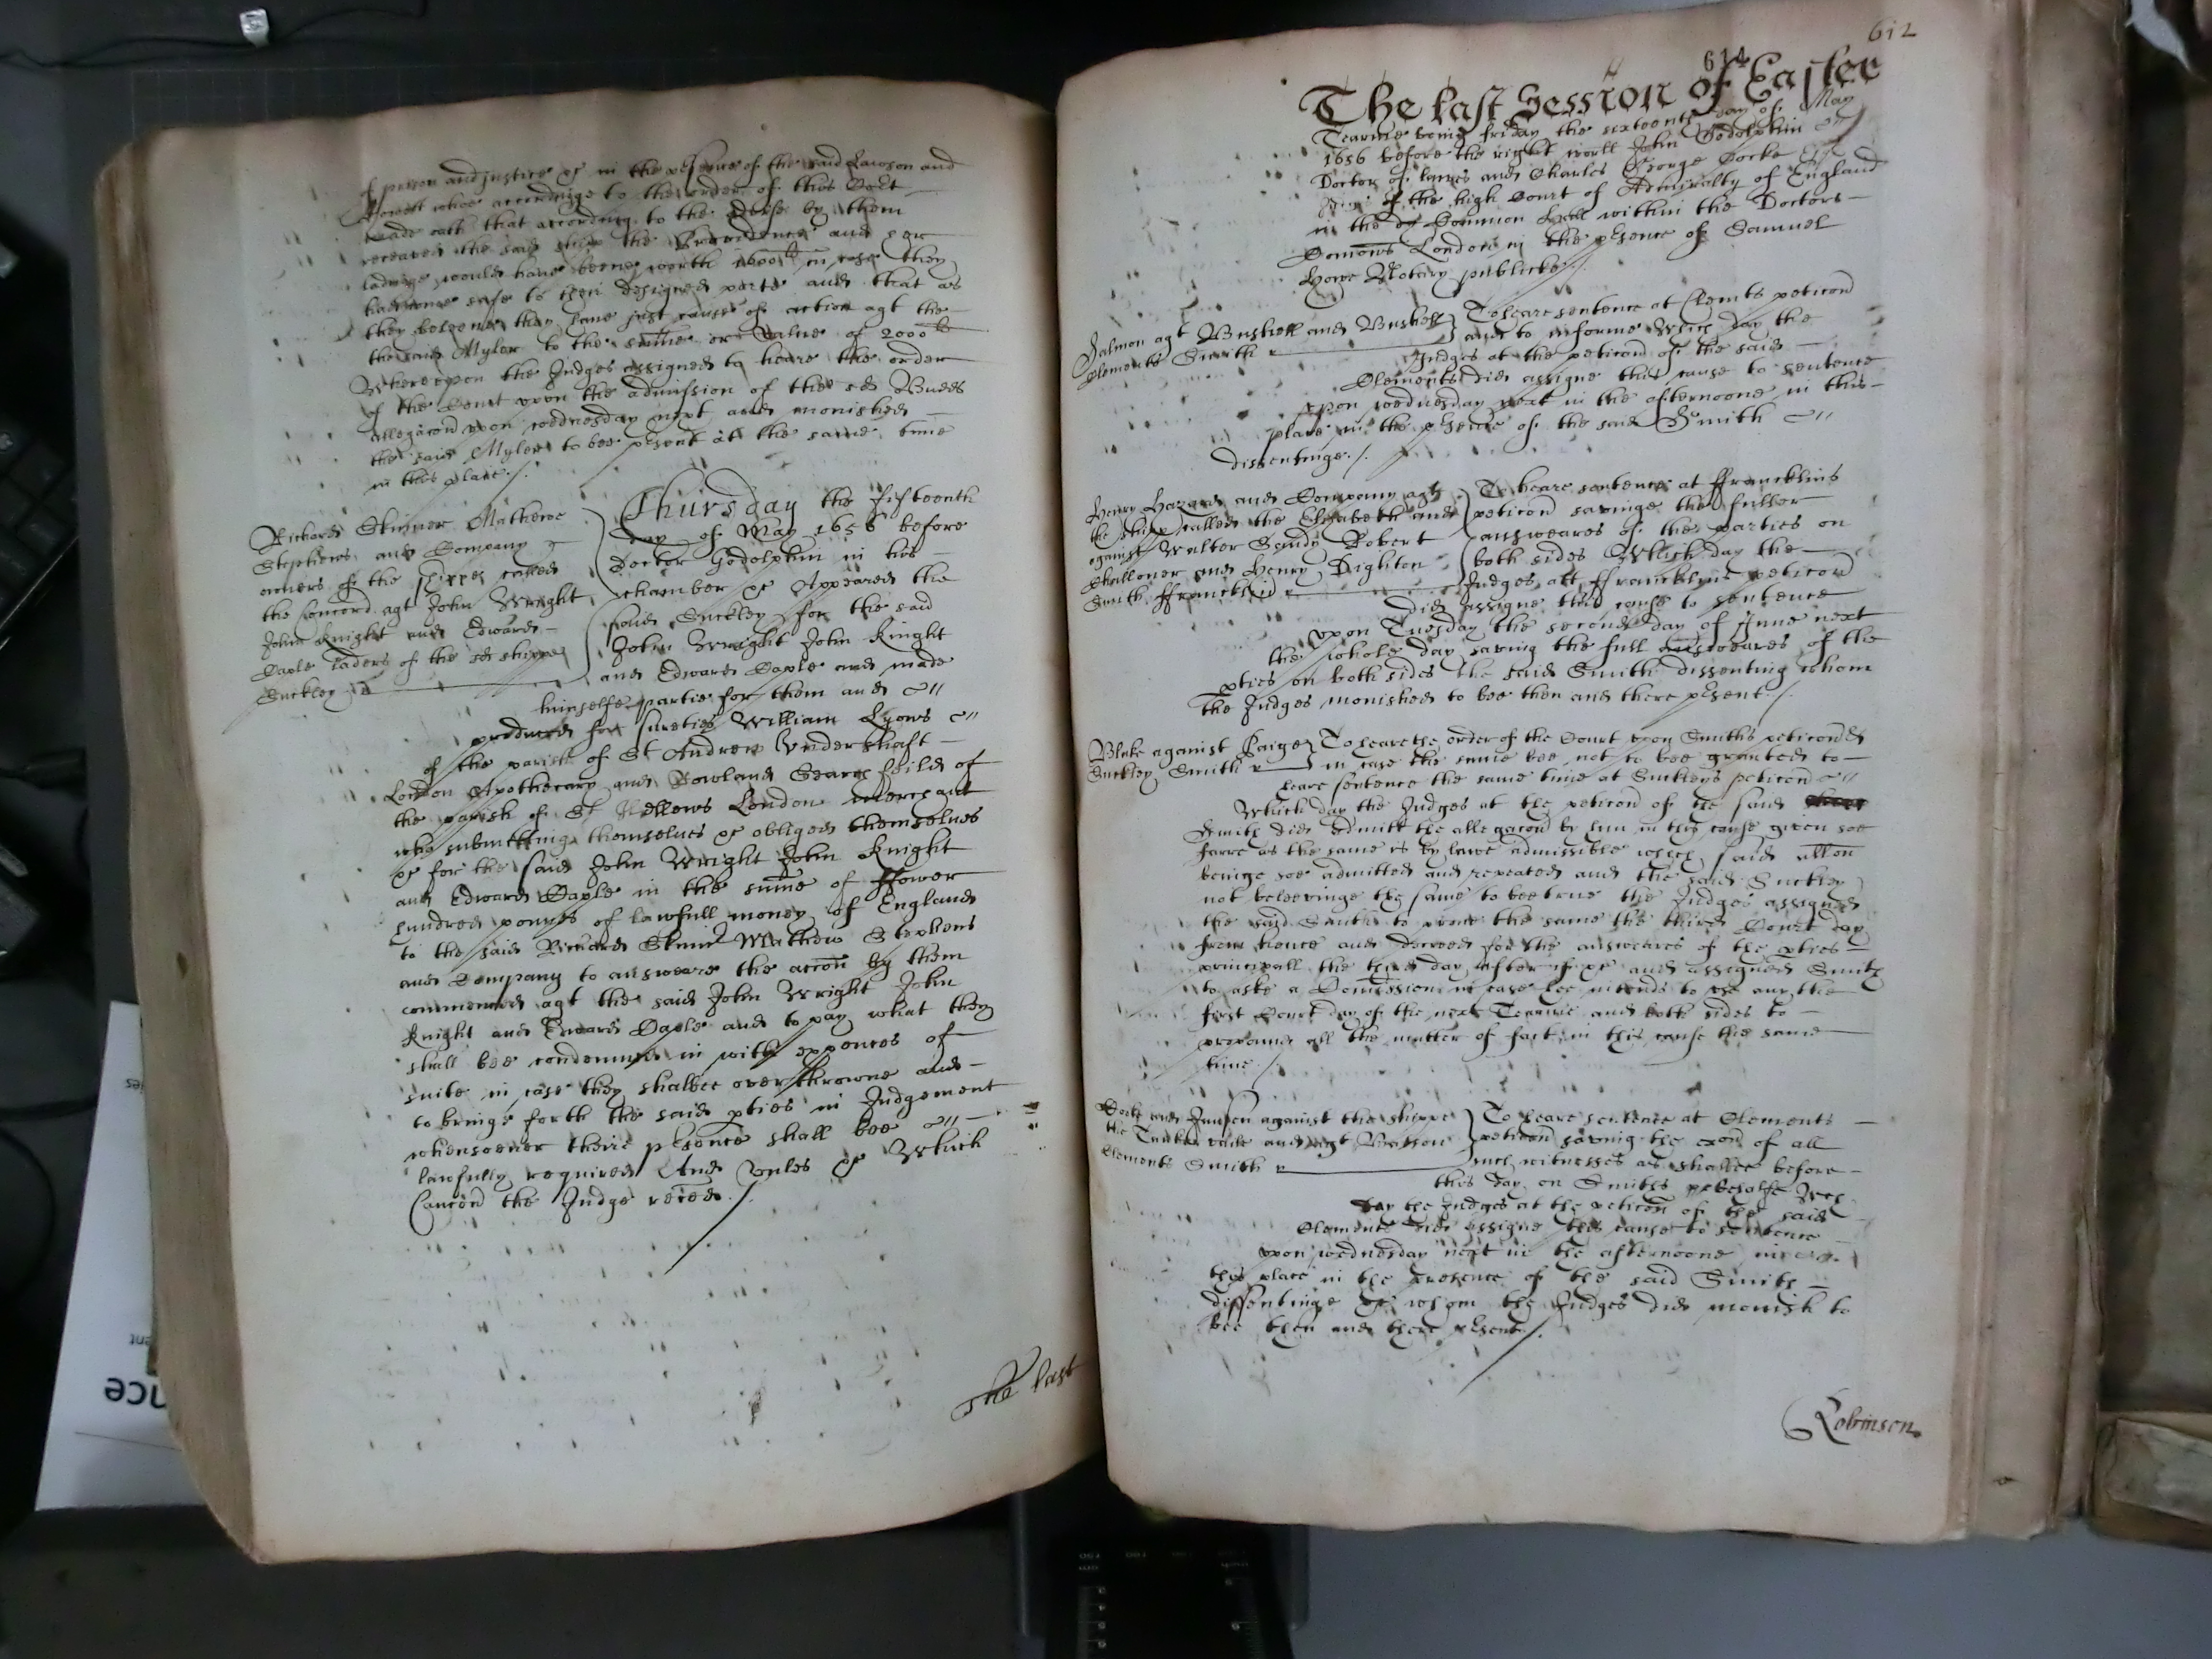 of person and justice &c in the presence of the said Lawson and
who accordinge to the order of this Court
made oath that according to the by them
the said shipp the Providence and her
ladinge would have beene worth 1600 li in case they
had come safe to their designed ports and that as
they beleeve they have just cause of action agt the
the said Myler to the or value of 2000 li
Whereupon the Judges assigned to heare the order
of the Court upon the admission of the sd
allegacon upon wednesday next and monished
the said Myler to bee pnsent att the same time
in this place./.
Richard Skinner Mathewe
Stephens and Company
owners of the shippe called
the Concord agt John Wright
John Knight and Edward
Daple laders of the sd shippe
Suckley
Thursday the fifteenth
day of May 1656 before
Doctor Godolphin in his
chamber &c Appeared the
said Suckley for the said
John Wright John Knight
and Edward Daple and made
himselfe partie for them and
produced for sureties William Lyons
of the parish of St Andrew Undershaft
London Apothecary and Rowland Searchfeild of
the parish of St Hellens London merchant
who submitting themselves &c obliged themselves
&c for the said John Wright John Knight
and Edward Daple in the sume of ffower
hundred pounds of lawfull money of England
to the said Richard Skinner Mathew Stephens
and Company to answeare the acion by them
commenced agt the said John Wright John
Knight and Edward Daple and to pay what they
shall bee condemned in with expences of
suite in case they shalbee overthrowne and
to bringe forth the said pties in Judgement
whensoever their pnsence shall bee
lawfully required And unles &c Which
Caucon the Judge reced./
The last
612
614
The last Session of Easter
Tearme being friday the sixteenth day of May
1656 before the right worll John Godolphin
Doctor of lawes and Charles George Cocke Esqr
Judges of the high Court of Admiralty of England
in the Common Hall within the Doctors
Comons London in the pnsence of Samuel
Howe Notary publicke./.
Salmon agt Bushell and Bushell
Clements Smith
To heare sentence at Clemts peticon
and to informe Which day the
Judges at the peticon of the said
Clements did assigne this cause to sentence
upon wednesday next in the afternoone in this
place in the pnsence of the said Smith
dissentinge./.
Henry Hazard and Company agt
the shipp called the Elizabeth and
against Walter Gandy Robert
Challoner and Henry Dighton
Smith ffrancklin
To heare sentence at ffrancklins
peticon savinge the fuller
answeares of the parties on
both sides Which day the
Judges att ffrancklins peticon
did assigne this cause to sentence
upon Tuesday the second day of June next
the whole day saving the full answeares of the
pties on both sides the said Smith dissenting whom
the Judges monished to bee then and there pnsent./.
Blake against Paige
Suckley Smith
To heare the order of the Court upon Smiths peticon &
in case the same bee not to bee granted to
heare sentence the same time at Suckleys peticon
Which day the Judges at the peticon of the said
Smith did admitt the allegacon by him in this cause given soe
farre as the same is by lawe admissible which said allon
beinge soe admitted and repeated and the said Suckley
not beleevinge the same to bee true the Judges assigned
the said Smith to prove the same the third Court day
from hence and decreed for the answeares of the pties
principall the third day after if &c and assigned Smith
to aske a Comission in case hee intends to use any the
first Court day of the next Tearme and both sides to
propound all the matter of fact in this cause the same
time./.
and Jansen against the shippe
the and agt
Clements Smith
To heare sentence at Clements
peticon saving the exon of all
such witnesses as shalbee before
this day on Smiths behalfe Wch
day the Judges at the peticon of the said
Clements did assigne this cause to sentence
upon wednesday next in the afternoone in
this place in the presence of the said Smith
dissentinge &c whom the Judges did monish to
bee then and there pnsent./.
Robinson